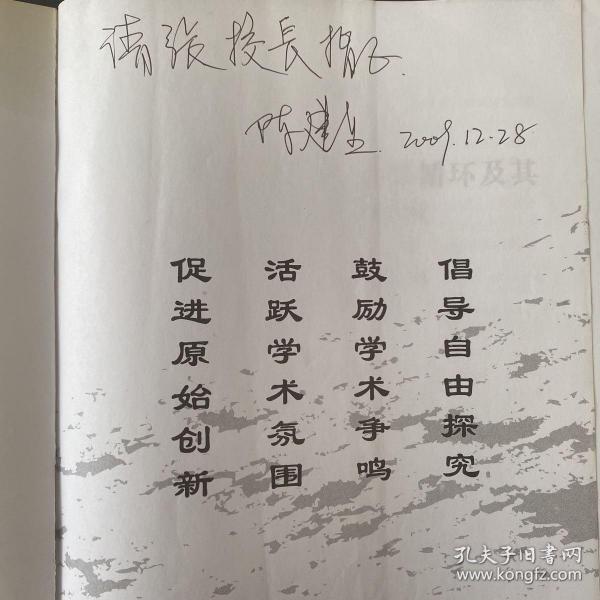 请张校長指正.
陈建生 2009.12.28
循环及其
倡导自由探究
鼓励学术争鸣
活跃学术氛围
促进原始创新
孔夫子旧书网
www.kongfz.com